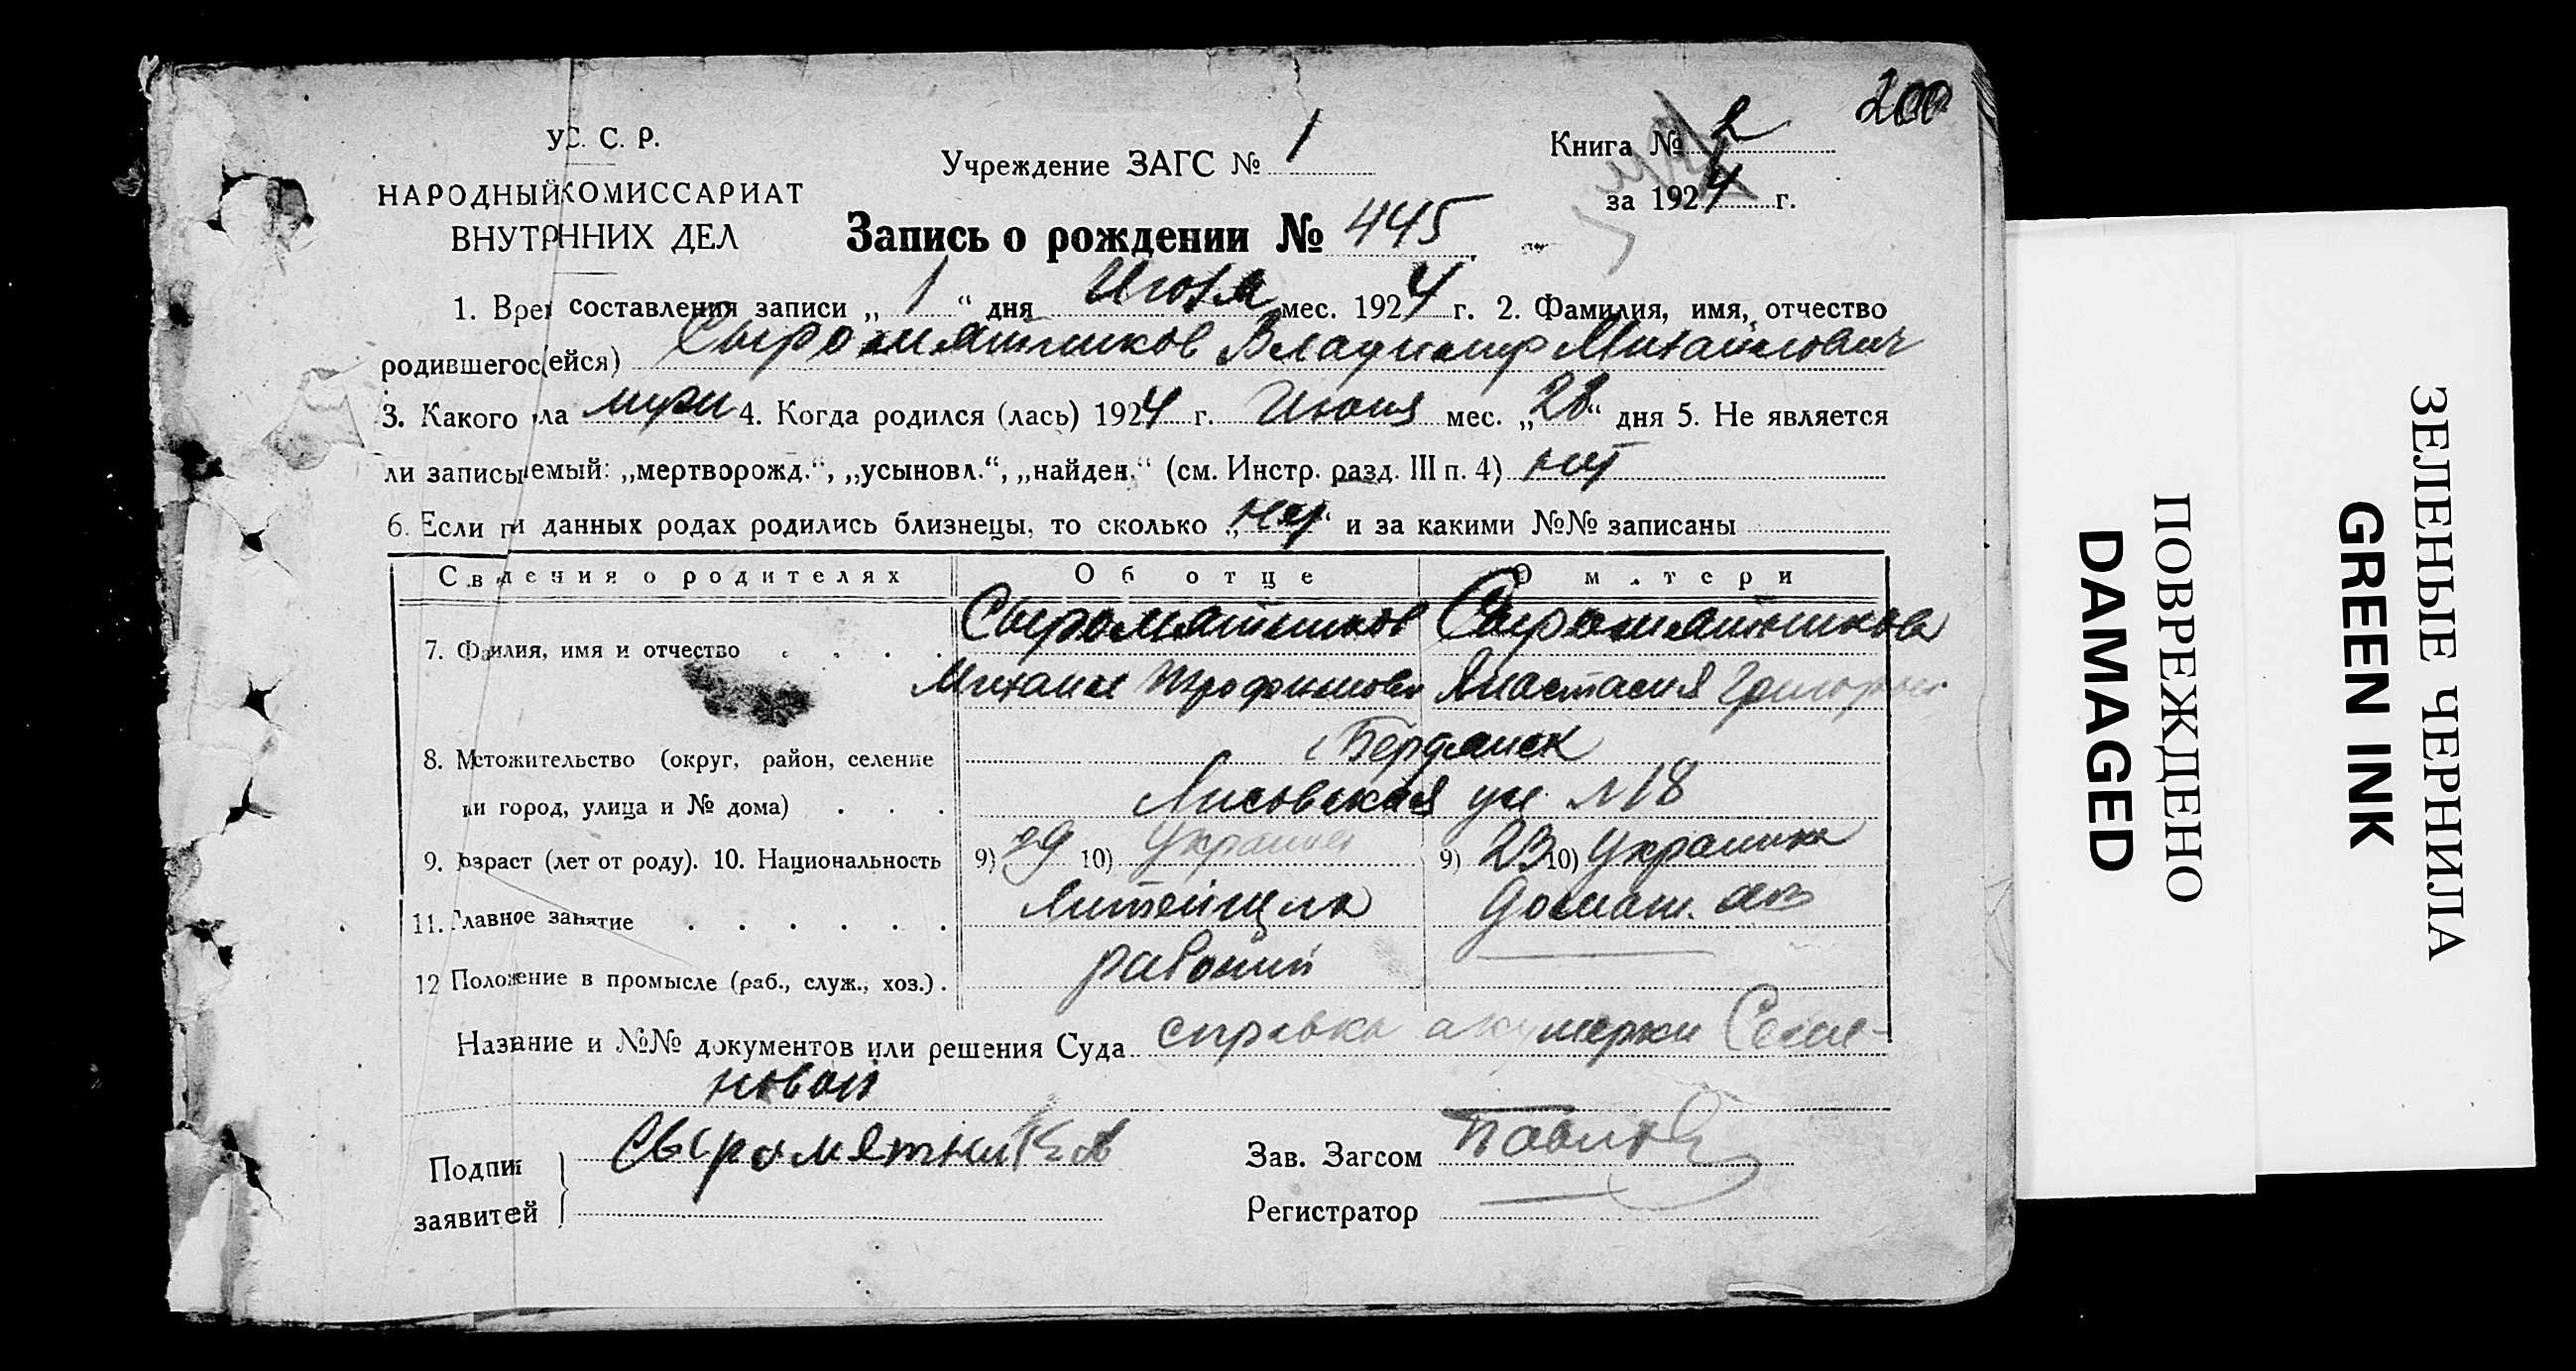 200
У.С.С.Р.
НАРОДНЫЙ КОМИССАРИАТ
ВНУТРЕННИХ ДЕЛ
Учреждение ЗАГС № 1
Книга № 2
за 1924 г.
Запись о рождении № 445
1. Время составления записи „ 1 “ дня Июля мес. 1924 г. 2. Фамилия, имя, отчество
родившегося(ейся) Сыромятников Владимир Михайлович
3. Какого пола муж 4. Когда родился (лась) 1924 г. Июня мес. „28“ дня 5. Не является
ли записываемый: „мертворожд.“, „усыновл.“, „найден.“ (см. Инстр. разд. III п. 4) нет
6. Если при данных родах родились близнецы, то сколько „нет“ и за какими №№ записаны
Сведения о родителях Об отце О матери
7. Фамилия, имя и отчество Сыромятников Сыромятникова
Михаил Трофимович Анастасия
8. Местожительство (округ, район, селение г Бердянск
или город, улица и № дома) Лисовская ул № 18
9. Возраст (лет от роду). 10. Национальность 9) 29 10) Украинец 9) 23 10) Украинка
11. Главное занятие Литейщик Домаш. хоз
12 Положение в промысле (раб., служ., хоз.) рабочий
Название и №№ документов или решения Суда справка акушерки Семе-
новой
Подписи заявителей Сыромятников
Зав. Загсом
Регистратор
ПОВРЕЖДЕНО
DAMAGED
ЗЕЛЕНЫЕ ЧЕРНИЛА
GREEN INK